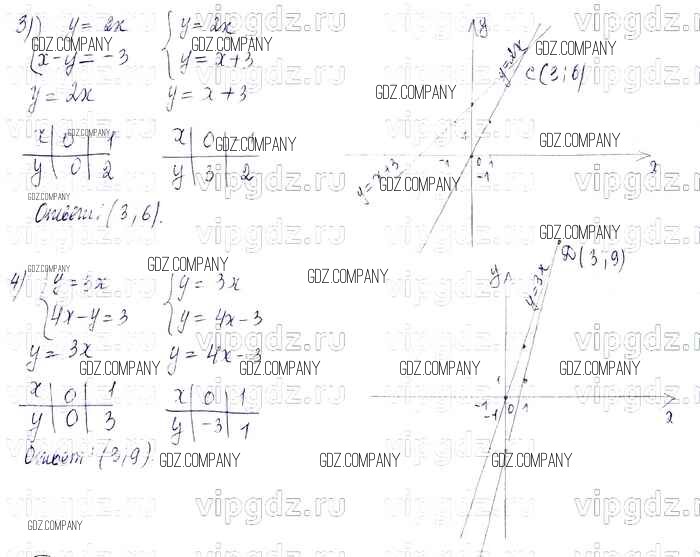 3) { y = 2x { y = 2x
{ x - y = -3 { y = x + 3
y = 2x y = x + 3
x | 0 | 1 x | 0 |
y | 0 | 2 y | 3 | 2
Ответ: (3, 6).
y
y = 2x
C(3; 6)
1
-1 0 1
-1
x
y = x + 3
4) { y = 3x { y = 3x
{ 4x - y = 3 { y = 4x - 3
y = 3x y = 4x - 3
x | 0 | 1 x | 0 | 1
y | 0 | 3 y | -3 | 1
Ответ: (3, 9).
D(3; 9)
y
y = 3x
1
-1 0 1
-1
x
GDZ.COMPANY
vipgdz.ru